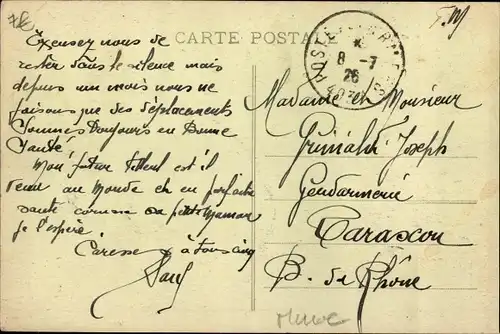 CARTE POSTALE
Excusez nous de
rester dans le silence mais
depuis un mois nous ne
faisons que des déplacements
Sommes toujours en bonne
santé
Mon futur filleul est il
venu au monde et en parfaite
santé comme sa petite maman
je l'espère
Caresse à tous cinq
Paul
POSTE AUX ARMEES
*
8 - 7
26
Madame et Monsieur
Grimaldi Joseph
Gendarmerie
Tarascon
B. du Rhône